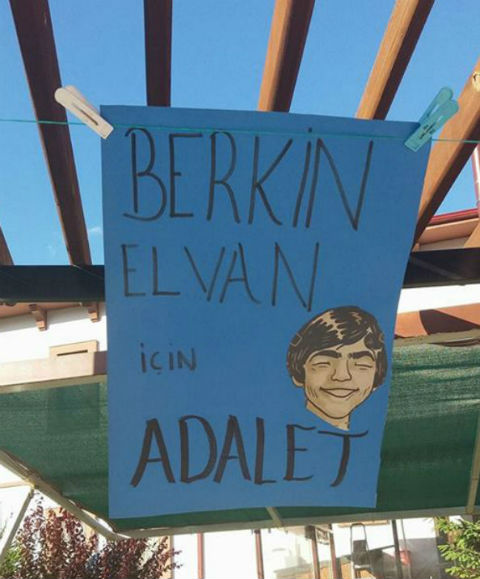 BERKİN
ELVAN
İÇİN
ADALET